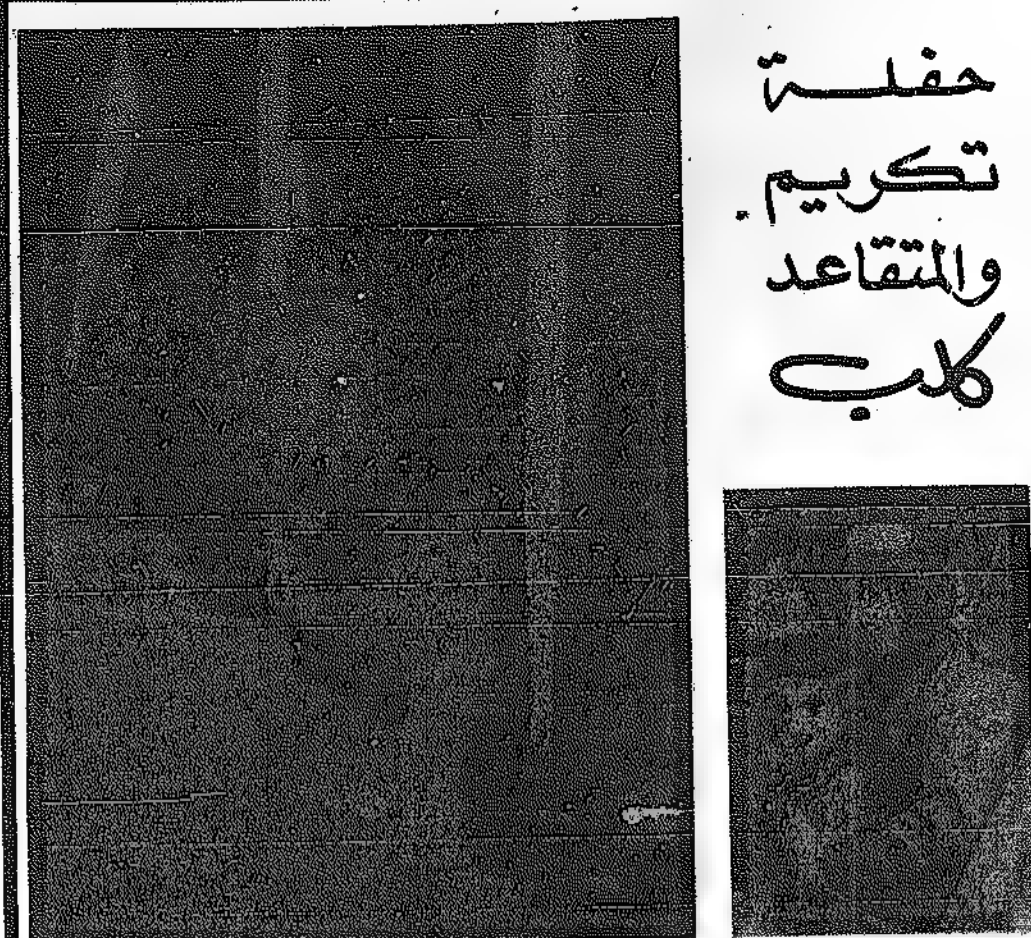 حفلة
تكريم
والمتقاعد
كلب